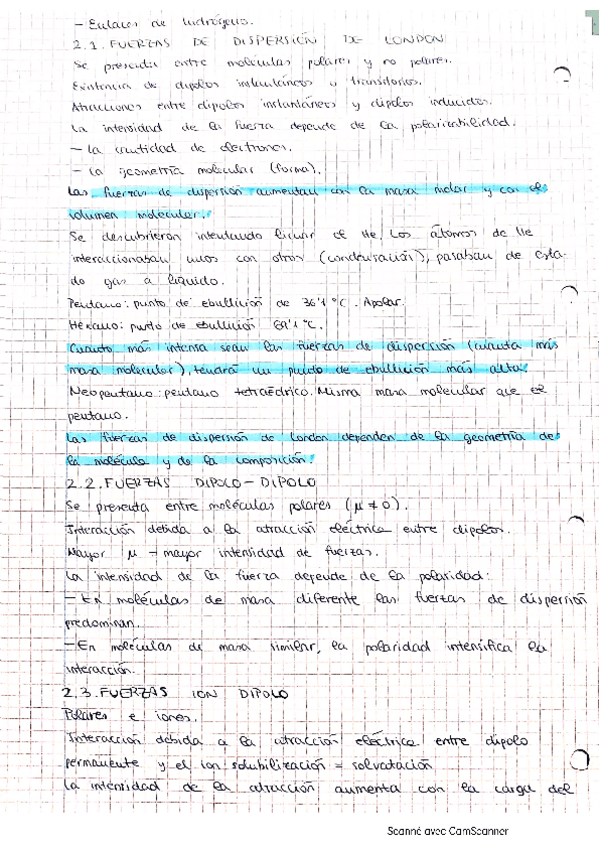 - Enlaces de hidrógeno.
2.1. FUERZAS DE DISPERSIÓN DE LONDON
Se presenta entre moléculas polares y no polares.
Existencia de dipolos instantáneos o transitorios.
Atracciones entre dipolos instantáneos y dipolos inducidos.
La intensidad de la fuerza depende de la polarizabilidad.
- La cantidad de electrones.
- La geometría molecular (forma).
Las fuerzas de dispersión aumentan con la masa molar y con el
volumen molecular.
Se descubrieron intentando licuar el He. Los átomos de He
interaccionaban unos con otros (condensación), pasaban de esta-
do gas a líquido.
Pentano: punto de ebullición de 36'1 °C. Apolar.
Hexano: punto de ebullición 69'1 °C.
Cuanto más intensa sean las fuerzas de dispersión (cuanta más
masa molecular), tendrá un punto de ebullición más alto.
Neopentano: pentano tetraédrico. Misma masa molecular que el
pentano.
Las fuerzas de dispersión de London dependen de la geometría de
la molécula y de la composición.
2.2. FUERZAS DIPOLO-DIPOLO
Se presenta entre moléculas polares (μ ≠ 0).
Interacción debida a la atracción eléctrica entre dipolos.
Mayor μ - mayor intensidad de fuerzas.
La intensidad de la fuerza depende de la polaridad:
- En moléculas de masa diferente las fuerzas de dispersión
predominan.
- En moléculas de masa similar, la polaridad intensifica la
interacción.
2.3. FUERZAS ION DIPOLO
Polares e iones.
Interacción debida a la atracción eléctrica entre dipolo
permanente y el ion solubilización = solvatación
La intensidad de la atracción aumenta con la carga del
Scanné avec CamScanner